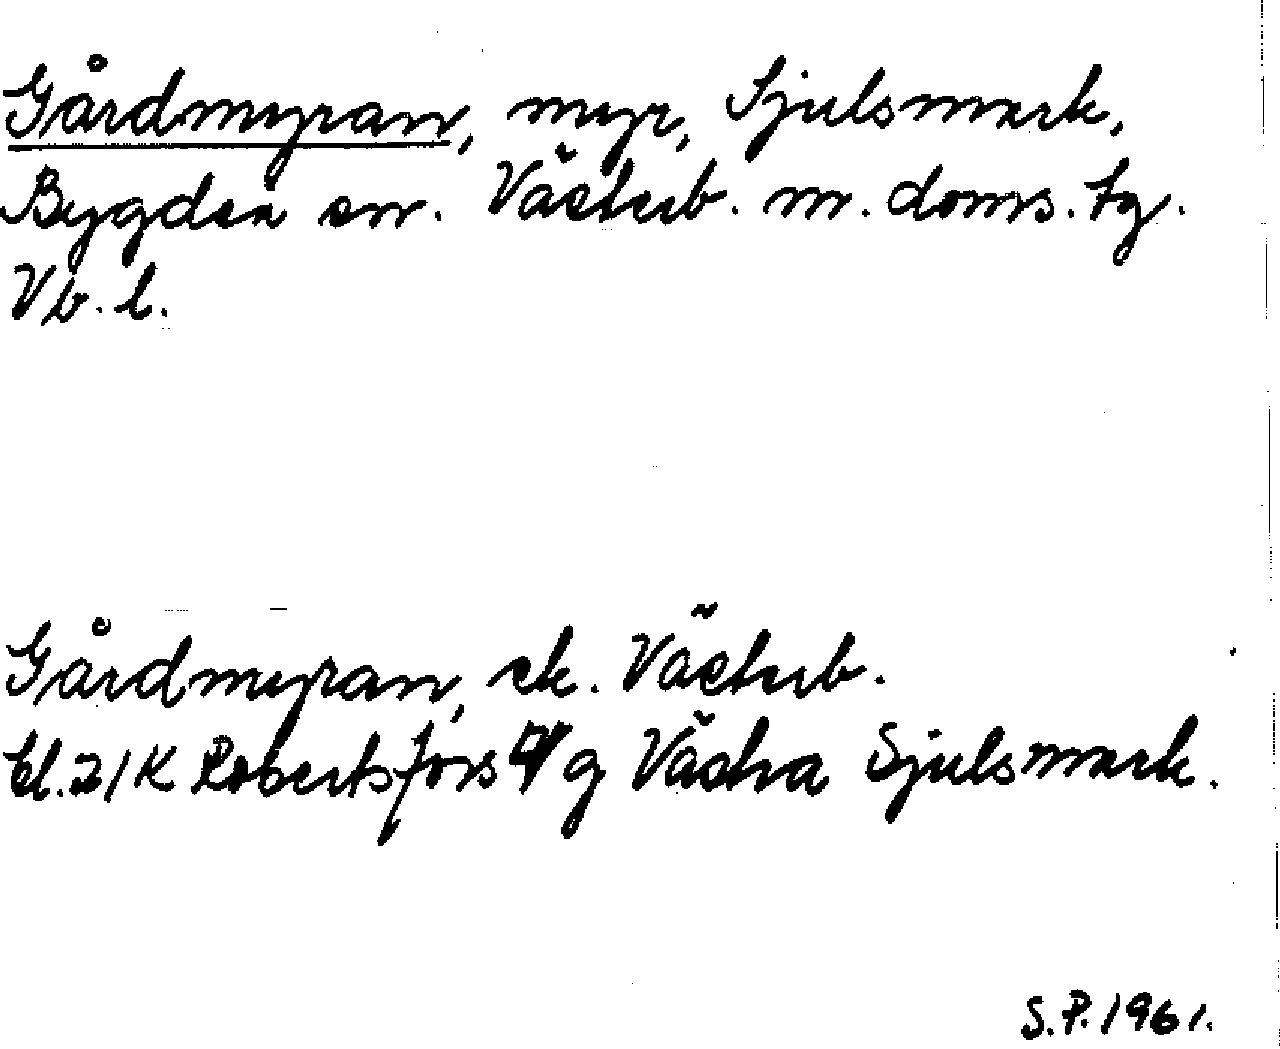 Gårdmyran, myr, Sjulsmark,
Bygdeå sn. Västerb. m. doms. tg.
Vb. l.
Gårdmyran, ek. Västerb.
bl. 21K Robertsfors g Västra Sjulsmark.
S.P. 1961.